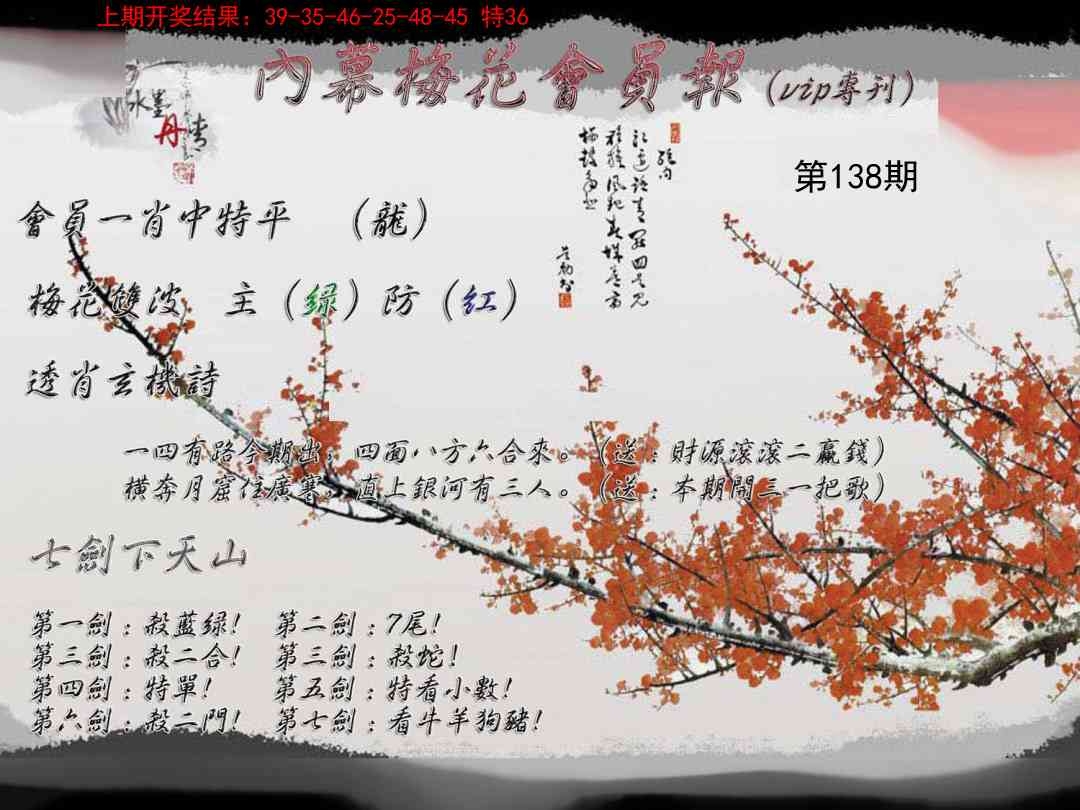 上期开奖结果：39-35-46-25-48-45 特36
內幕梅花會員報（vip專刊）
水墨
丹青
第138期
會員一肖中特平 （龍）
梅花雙波 主（綠）防（紅）
透肖玄機詩
一四有路今期出，四面八方六合來。（送：財源滾滾二贏錢）
橫奔月窟住廣寒，直上銀河有三人。（送：本期開三一把歌）
七劍下天山
第一劍：殺藍綠！ 第二劍：7尾！
第三劍：殺二合！ 第三劍：殺蛇！
第四劍：特單！ 第五劍：特看小數！
第六劍：殺二門！ 第七劍：看牛羊狗豬！